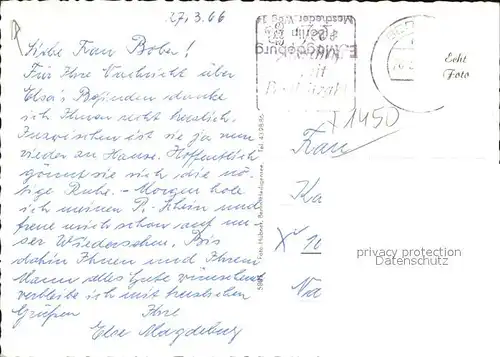 27.3.66
Liebe Frau Bober!
Für Ihre Nachricht über
Elsa's Befinden danke
ich Ihnen recht herzlich.
Inzwischen ist sie ja nun
wieder zu Hause. Hoffentlich
gönnt sie sich die nö-
tige Ruhe. - Morgen hole
ich meinen P. - Klein und
freue mich schon auf un-
ser Wiedersehen. Bis
dahin Ihnen und Ihrem
Mann alles Gute wünschend
verbleibe ich mit herzlichen
Grüßen Ihre
Else Magdeburg
E. Magdeburg
Berlin
mit
Echt
Foto
I1450
Frau
Ka
X 10
Na
privacy protection
Datenschutz